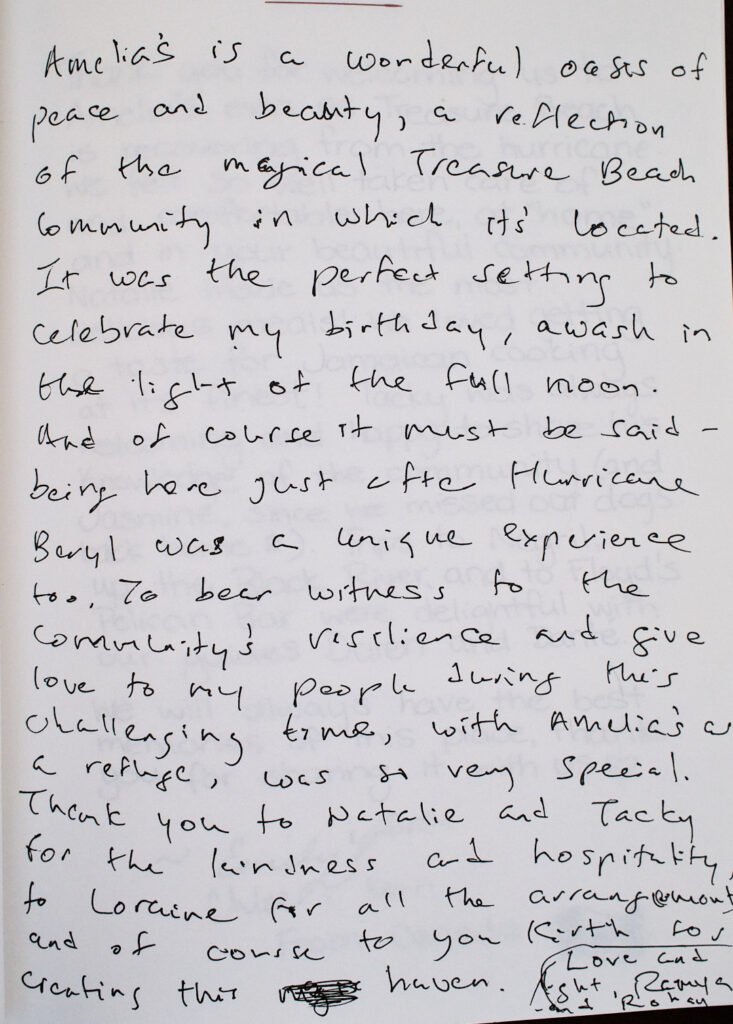 Amelia's is a wonderful oasis of
peace and beauty, a reflection
of the magical Treasure Beach
Community in which it's located.
It was the perfect setting to
celebrate my birthday, awash in
the light of the full moon.
And of course it must be said -
being here just after Hurricane
Beryl was a unique experience
too. To bear witness to the
Community's resilience and give
love to my people during this
challenging time, with Amelia's as
a refuge, was so very special.
Thank you to Natalie and Tacky
for the kindness and hospitality,
to Loraine for all the arrangement
and of course to you Kirth for
creating this haven.
Love and
light, Ramya
and Rohan